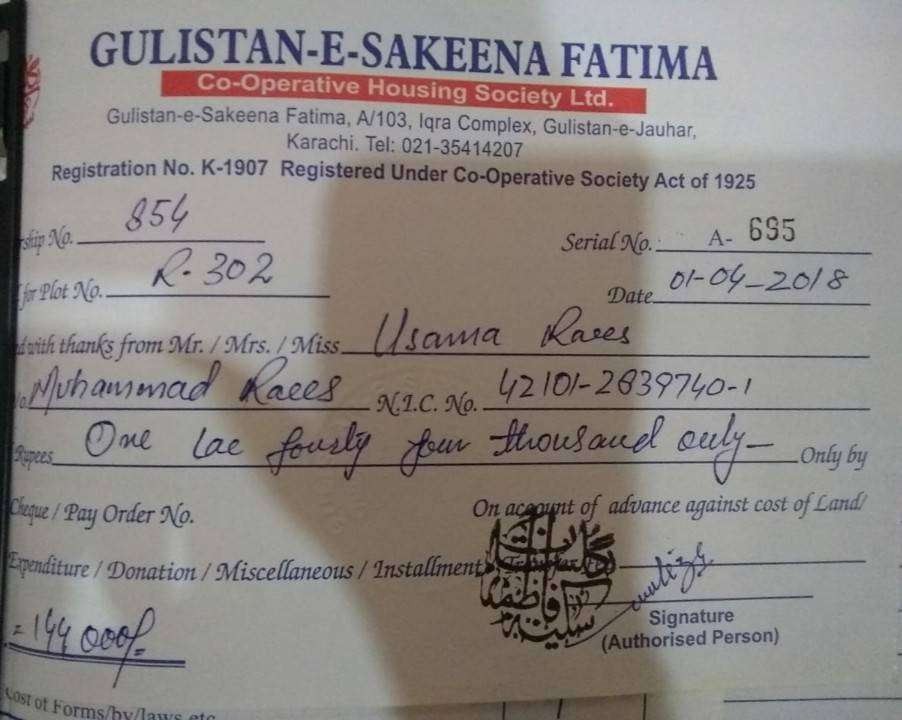 GULISTAN-E-SAKEENA FATIMA
Co-Operative Housing Society Ltd.
Gulistan-e-Sakeena Fatima, A/103, Iqra Complex, Gulistan-e-Jauhar,
Karachi. Tel: 021-35414207
Registration No. K-1907 Registered Under Co-Operative Society Act of 1925
ship No. 854
Serial No.: A- 695
for Plot No. R-302
Date 01-04-2018
d with thanks from Mr. / Mrs. / Miss Usama Raees
Muhammad Raees N.I.C. No. 42101-2839740-1
Rupees One lac fourty four thousand only Only by
Cheque / Pay Order No. On account of advance against cost of Land/
Expenditure / Donation / Miscellaneous / Installment
گلستان
سکینہ فاطمہ
= 144000/-
Signature
(Authorised Person)
Cost of Forms/by/laws etc